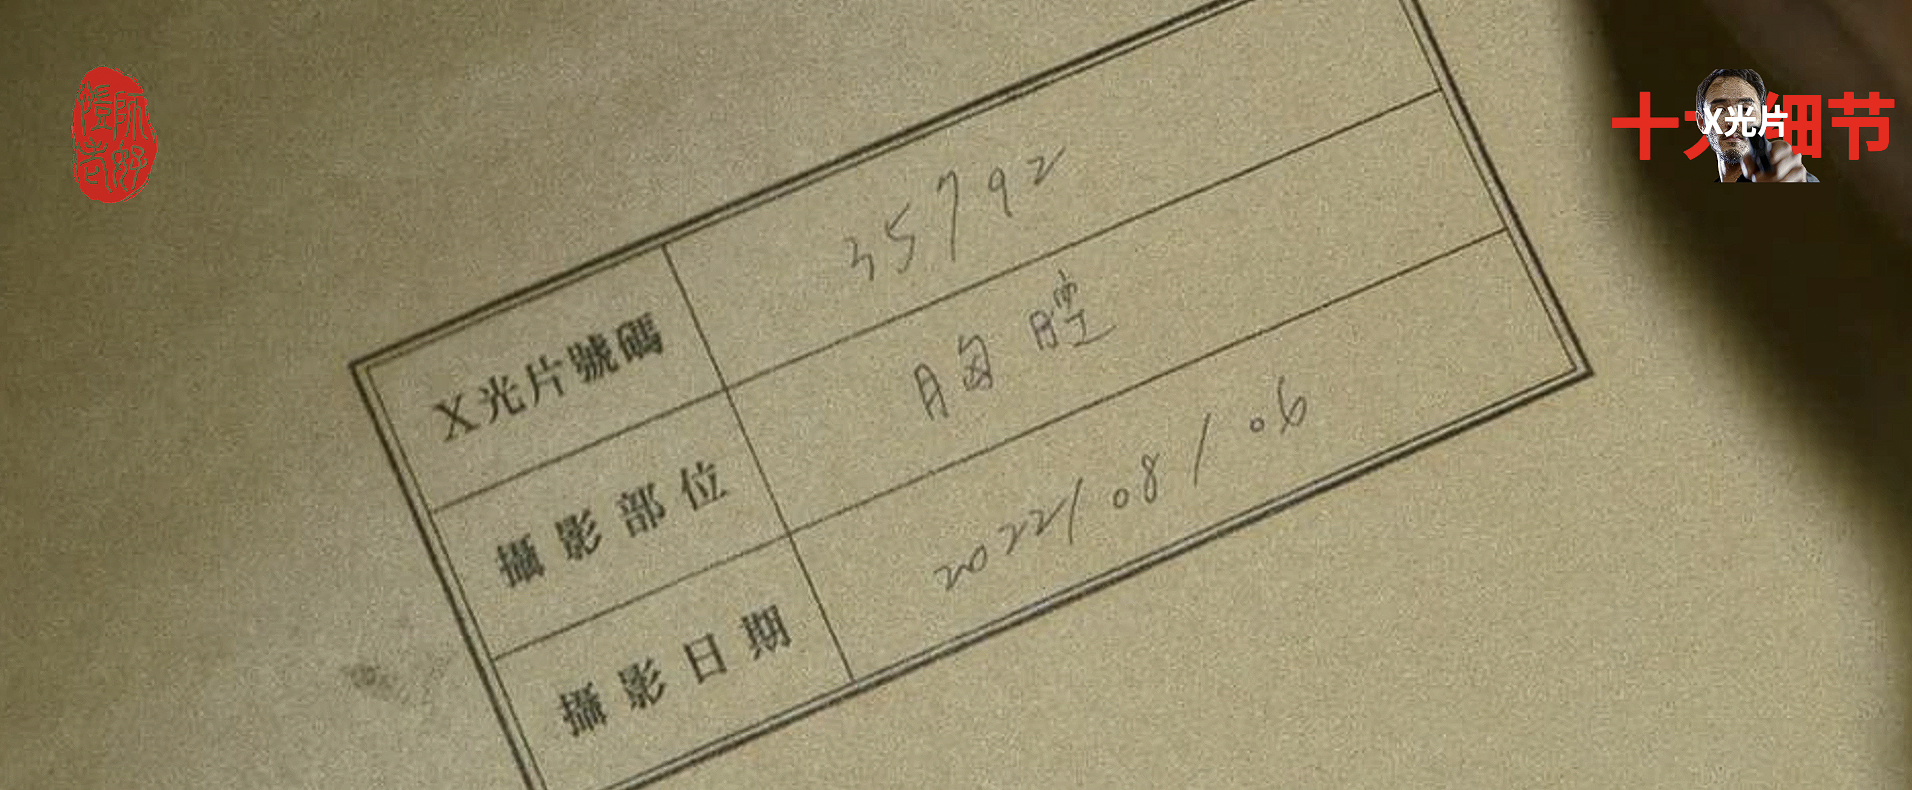 十大细节
X光片
X光片號碼 35792
攝影部位 胸腔
攝影日期 2022/08/06